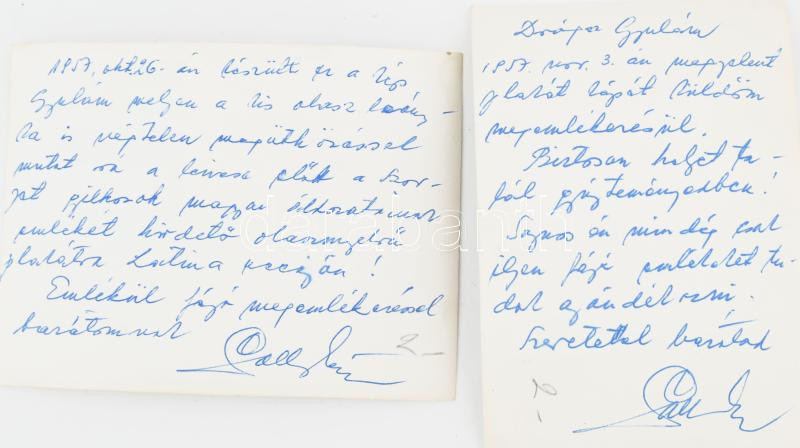 1957. okt. 26.-án készült ez a kép
Gyulám melyen a kis olasz leány-
ka is végtelen megütközéssel
mutat rá a téves előtt a szov-
jet gyilkosok magyar áldozatainak
emlékét hirdető olasznyelvű
plakátra Latina uccáján!
Emlékül fájó megemlékezéssel
barátomnak
2-
Drága Gyulám
1957. nov. 3.-án megjelent
plakát képét küldöm
megemlékezésül.
Biztosan helyet ta-
lál gyűjteményedben!
Sajnos én mindég csak
ilyen fájó emlékeket tu-
dok ajándékozni.
Szeretettel barátod
darabanth